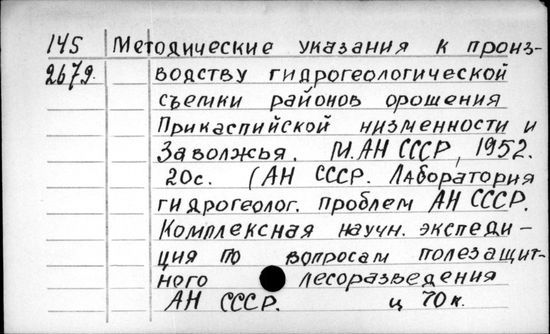 145 Методические указания к произ-
2679. водству гидрогеологической
съемки районов орошения
Прикаспийской низменности и
Заволжья. М. АН СССР, 1952.
20с. (АН СССР. Лаборатория
гидрогеолог. проблем АН СССР.
Комплексная научн. экспеди-
ция по вопросам полезащит-
ного лесоразведения
АН СССР. ц 70к.